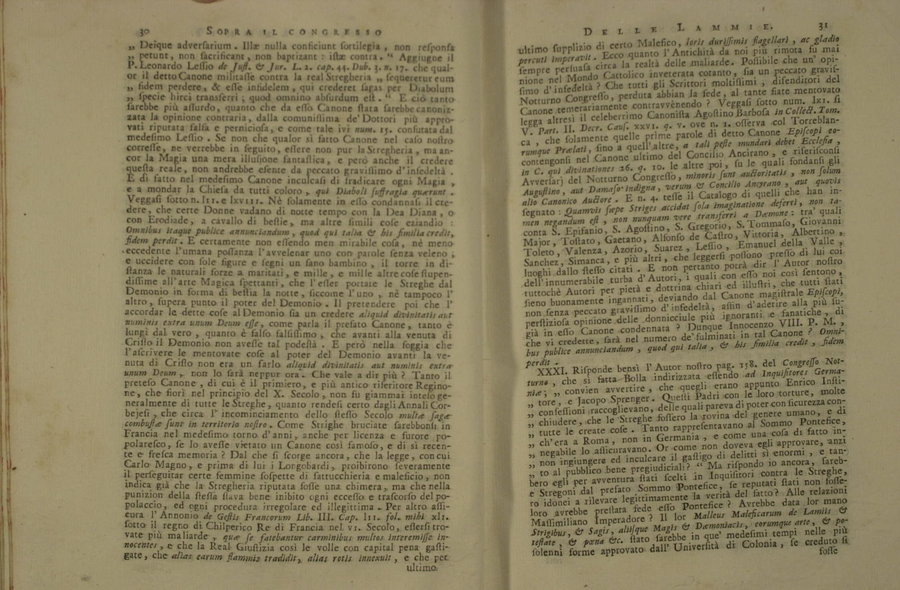 30 SOPRA IL CONGRESSO
„ Deique adversarium. Illæ nulla conficiunt sortilegia, non responsa
„ petunt, non sacrificant, non baptizant: istæ contra. “ Aggiugne il
P. Leonardo Lessio de Just. & Jur. L. 2. cap. 44. Dub. 3. n. 17. che qual-
or il detto Canone militasse contra la real Stregheria „ sequeretur eum
„ fidem perdere, & esse infidelem, qui crederet sagas per Diabolum
„ specie hirci transferri; quod omnino absurdum est. “ E ciò tanto
sarebbe più assurdo, quanto che da esso Canone stata sarebbe canoniz-
zata la opinione contraria, dalla comunissima de' Dottori più appro-
vati riputata falsa e perniciosa, e come tale ivi num. 15. confutata dal
medesimo Lessio. Se non che qualor si fatto Canone nel caso nostro
corresse, ne verrebbe in seguito, essere non pur la Stregheria, ma an-
cor la Magia una mera illusione fantastica, e però anche il credere
quella reale, non andrebbe esente da peccato gravissimo d'infedeltà.
E di fatto nel medesimo Canone inculcasi di sradicare ogni Magia,
e a mondar la Chiesa da tutti coloro, qui Diaboli suffragia quærunt.
Veggasi sotto n. LII. e LXVIII. Nè solamente in esso condannasi il cre-
dere, che certe Donne vadano di notte tempo con la Dea Diana, o
con Erodiade, a cavallo di bestie, ma altre simili cose eziandio:
Omnibus itaque publice annunciandum, quod qui talia & his similia credit,
fidem perdit. E certamente non essendo men mirabile cosa, nè meno
eccedente l'umana possanza l'avvelenar uno con parole senza veleno,
e uccidere con sole figure e segni un sano bambino, il torre in di-
stanza le naturali forze a maritati, e mille, e mille altre cose stupen-
dissime all'arte Magica spettanti, che l'esser portate le Streghe dal
Demonio in forma di bestia la notte, siccome l'uno, nè tampoco l'
altro, supera punto il poter del Demonio. Il pretendere poi che l'
accordar le dette cose al Demonio sia un credere aliquid divinitatis aut
numinis extra unum Deum esse, come parla il prefato Canone, tanto è
lungi dal vero, quanto è falso falsissimo, che avanti alla venuta di
Cristo il Demonio non avesse tal podestà. E però nella foggia che
l'ascrivere le mentovate cose al poter del Demonio avanti la ve-
nuta di Cristo non era un farlo aliquid divinitatis aut numinis extra
unum Deum, non lo sarà neppur ora. Che vale a dir più? Tanto il
preteso Canone, di cui è il primiero, e più antico riferitore Regino-
ne, che fiorì nel principio del X. Secolo, non fu giammai inteso ge-
neralmente di tutte le Streghe, quanto rendesi certo dagli Annali Cor-
bejesi, che circa l'incominciamento dello stesso Secolo multæ sagæ
combustæ sunt in territorio nostro. Come Strighe bruciate sarebbonsi in
Francia nel medesimo torno d'anni, anche per licenza e furore po-
polaresco, se lo avesse vietato un Canone così famoso, e di sì recen-
te e fresca memoria? Dal che si scorge ancora, che la legge, con cui
Carlo Magno, e prima di lui i Longobardi, proibirono severamente
il perseguitar certe femmine sospette di fattucchieria e maleficio, non
indica già che la Stregheria riputata fosse una chimera, ma che nella
punizion della stessa stava bene inibito ogni eccesso e trascorso del po-
polaccio, ed ogni procedura irregolare ed illegittima. Per altro assi-
cura l'Annonio de Gestis Francorum Lib. III. Cap. LII. fol. mihi XLI.
sotto il regno di Chilperico Re di Francia nel VI. Secolo, essersi tro-
vate più maliarde, quæ se fatebantur carminibus multos interemisse in-
nocentes, e che la Real Giustizia così le volle con capital pena gasti-
gate, che alias earum flammis tradidit, alias rotis innexuit, e che per
ultimo
DELLE LAMMIE. 31
ultimo supplizio di certo Malefico, loris durissimis flagellari, ac gladio
percuti imperavit. Ecco quanto l'Antichità da noi più rimota fu mai
sempre persuasa circa la realtà delle maliarde. Possibile che un' opi-
nione nel Mondo Cattolico inveterata cotanto, sia un peccato gravis-
simo d'infedeltà? Che tutti gli Scrittori moltissimi, difenditori del
Notturno Congresso, perduta abbian la fede, al tante fiate mentovato
Canone temerariamente contravvenendo? Veggasi sotto num. LXI. si
legga altresì il celeberrimo Canonista Agostino Barbosa in Collect. Tom.
V. Part. II. Decr. Caus. XXVI. q. V. ove n. 1. osserva col Torreblan-
ca, che solamente quelle prime parole di detto Canone Episcopi eo-
rumque Prælati, fino a quell'altre, a tali peste mundari debet Ecclesia,
contengonsi nel Canone ultimo del Concilio Ancirano, e riferisconsi
in C. qui divinationes 26. q. 10. le altre poi, su le quali fondansi gli
Avversarj del Notturno Congresso, minoris sunt auctoritatis, non solum
Augustino, aut Damaso indigna, verum & Concilio Ancyrano, aut quovis
alio Canonico Auctore. E n. 4. tesse il Catalogo di quelli che han in-
segnato: Quamvis sæpe Striges accidat sola imaginatione deferri, non ta-
men negandum est, non nunquam vere transferri a Dæmone: tra' quali
conta S. Epifanio, S. Agostino, S. Gregorio, S. Tommaso, Giovanni
Major, Tostato, Gaetano, Alfonso de Castro, Vittoria, Albertino,
Toleto, Valenza, Azorio, Suarez, Lessio, Emanuel della Valle,
Sanchez, Simanca, e più altri, che leggersi possono presso di lui coi
luoghi dallo stesso citati. E non pertanto potrà dir l'Autor nostro
dell'innumerabile turba d'Autori, i quali con esso noi così sentono,
tuttochè Autori per pietà e dottrina chiari ed illustri, che tutti stati
sieno buonamente ingannati, deviando dal Canone magistrale Episcopi,
non senza peccato gravissimo d'infedeltà, affin d'aderire alla più su-
perstiziosa opinione delle donnicciule più ignoranti e fanatiche, di
già in esso Canone condannata? Dunque Innocenzo VIII. P. M.,
che vi credette, sarà nel numero de' fulminati in tal Canone? Omni-
bus publice annunciandum, quod qui talia, & his similia credit, fidem
perdit.
XXXI. Risponde bensì l'Autor nostro pag. 158. del Congresso Not-
turno, che sì fatta Bolla indirizzata essendo ad Inquisitores Germa-
niæ; „ convien avvertire, che quegli erano appunto Enrico Insti-
„ tore, e Jacopo Sprenger. Questi Padri con le loro torture, molte
„ confessioni raccoglievano, delle quali pareva di poter con sicurezza con-
„ chiudere, che le Streghe fossero la rovina del genere umano, e di
„ tutte le create cose. Tanto rappresentavano al Sommo Pontefice,
„ ch'era a Roma, non in Germania, e come una cosa di fatto in-
„ negabile lo assicuravano. Or come non doveva egli approvare, anzi
„ non ingiungere ed inculcare il gastigo di delitti sì enormi, e tan-
„ to al pubblico bene pregiudiciali? “ Ma rispondo io ancora, sareb-
bero egli per avventura stati scelti in Inquisitori contra le Streghe,
e Stregoni dal prefato Sommo Pontefice, se reputati stati non fosse-
ro idonei a rilevare legittimamente la verità del fatto? Alle relazioni
loro avrebbe prestata fede esso Pontefice? Avrebbe data lor mano
Massimiliano Imperadore? Il lor Malleus Maleficarum de Lamiis &
Strigibus, & Sagis, aliisque Magis & Dæmoniacis, eorumque arte, & po-
testate, & pœna &c. stato sarebbe in que' medesimi tempi nelle più
solenni forme approvato dall'Università di Colonia, se creduto si
fosse